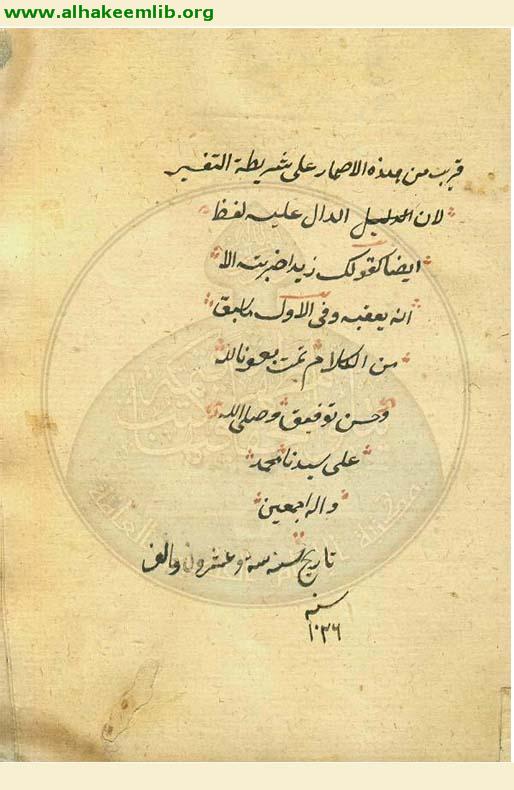 www.alhakeemlib.org
قريب من هذه الاضمار على شريطة التفسير
لان الدليل الدال عليه لفظ
ايضا كقولك زيدا ضربته الا
انه يعقبه وفى الاول سابق
من الكلام تمت بعون الله
وحسن توفيق وصلى الله
على سيدنا محمد
واله اجمعين
تاريخ سنه ستة وعشرون والف
سنه
١٠٢٦